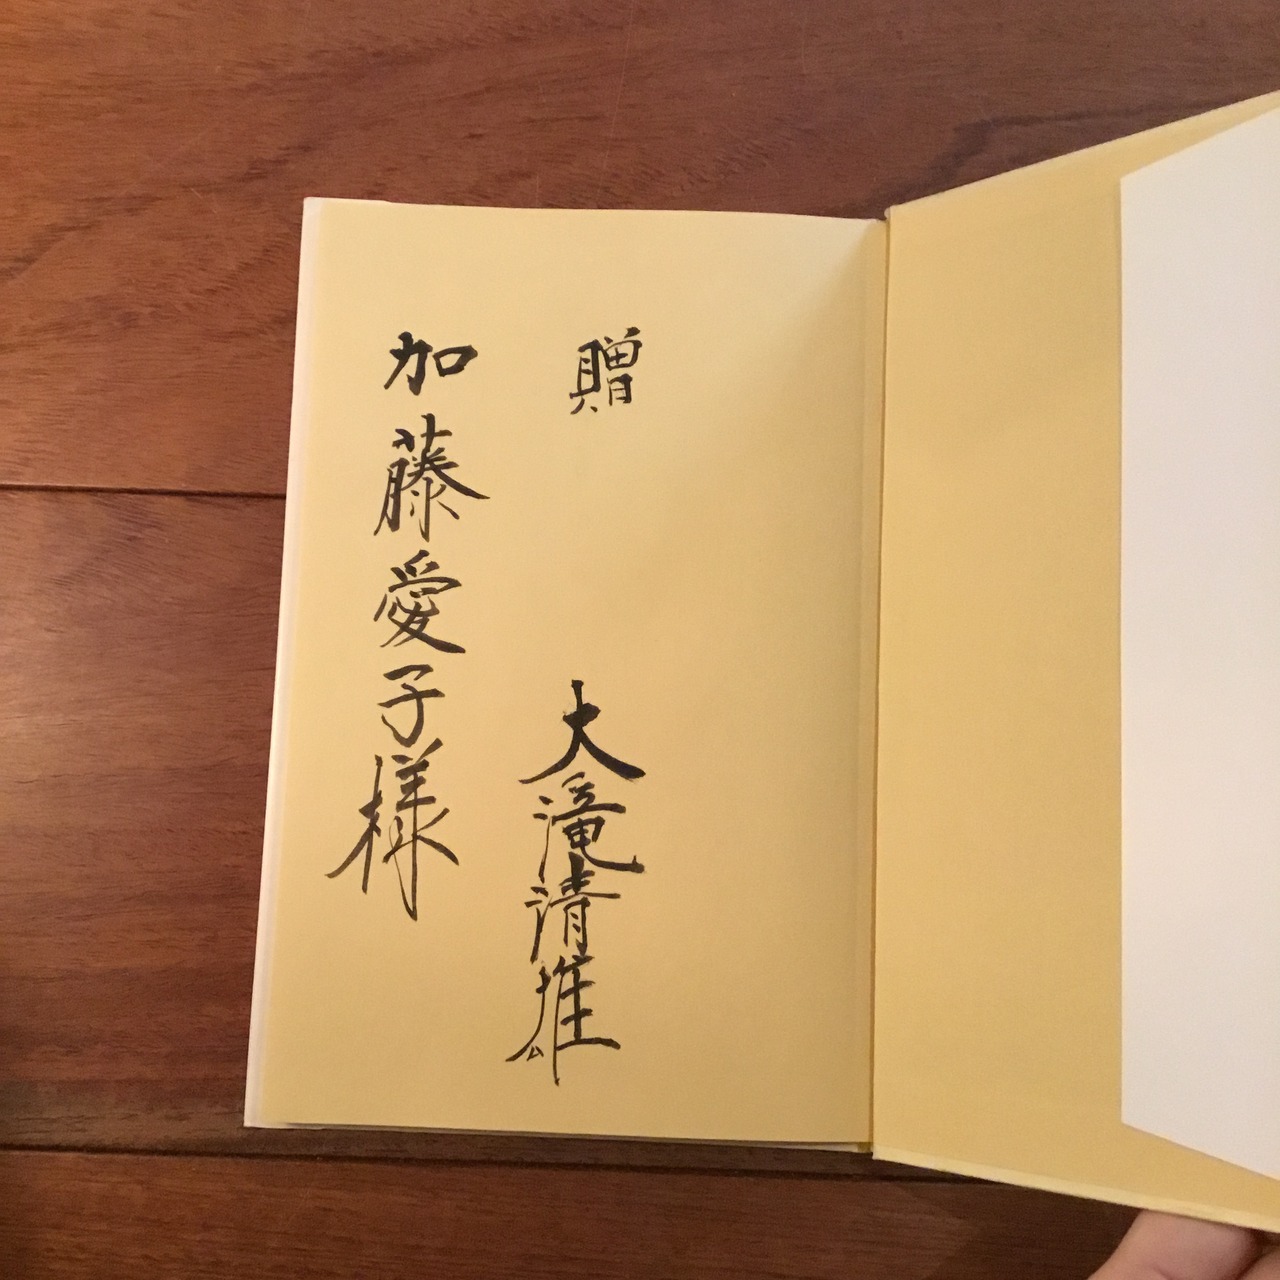 贈
大滝清雄
加藤愛子様